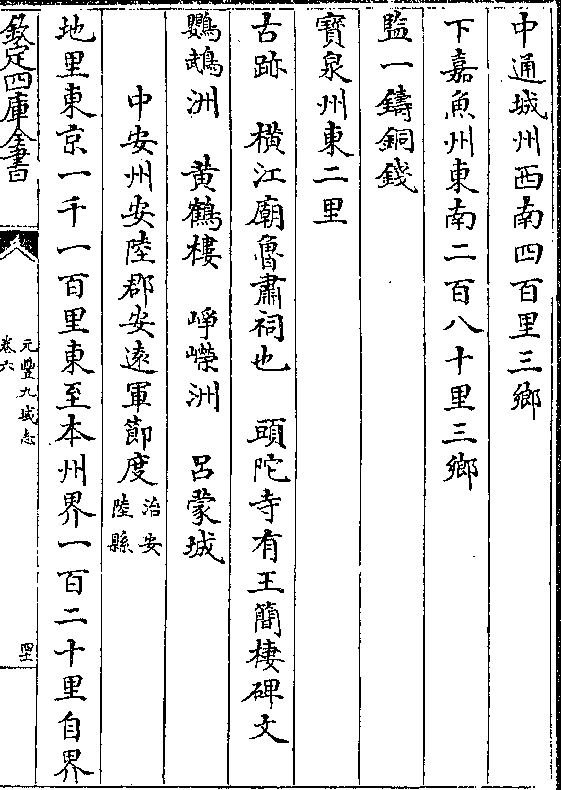 中通城州西南四百里三鄉
下嘉魚州東南二百八十里三鄉
監一鑄銅錢
寶泉州東二里
古跡　橫江廟魯肅祠也　頭陀寺有王簡棲碑文
鸚鵡洲　黄鶴樓　崢嶸洲　呂蒙城
中安州安陸郡安遠軍節度治安陸縣
地里東京一千一百里東至本州界一百二十里自界
欽定四庫全書
元豐九域志
卷六